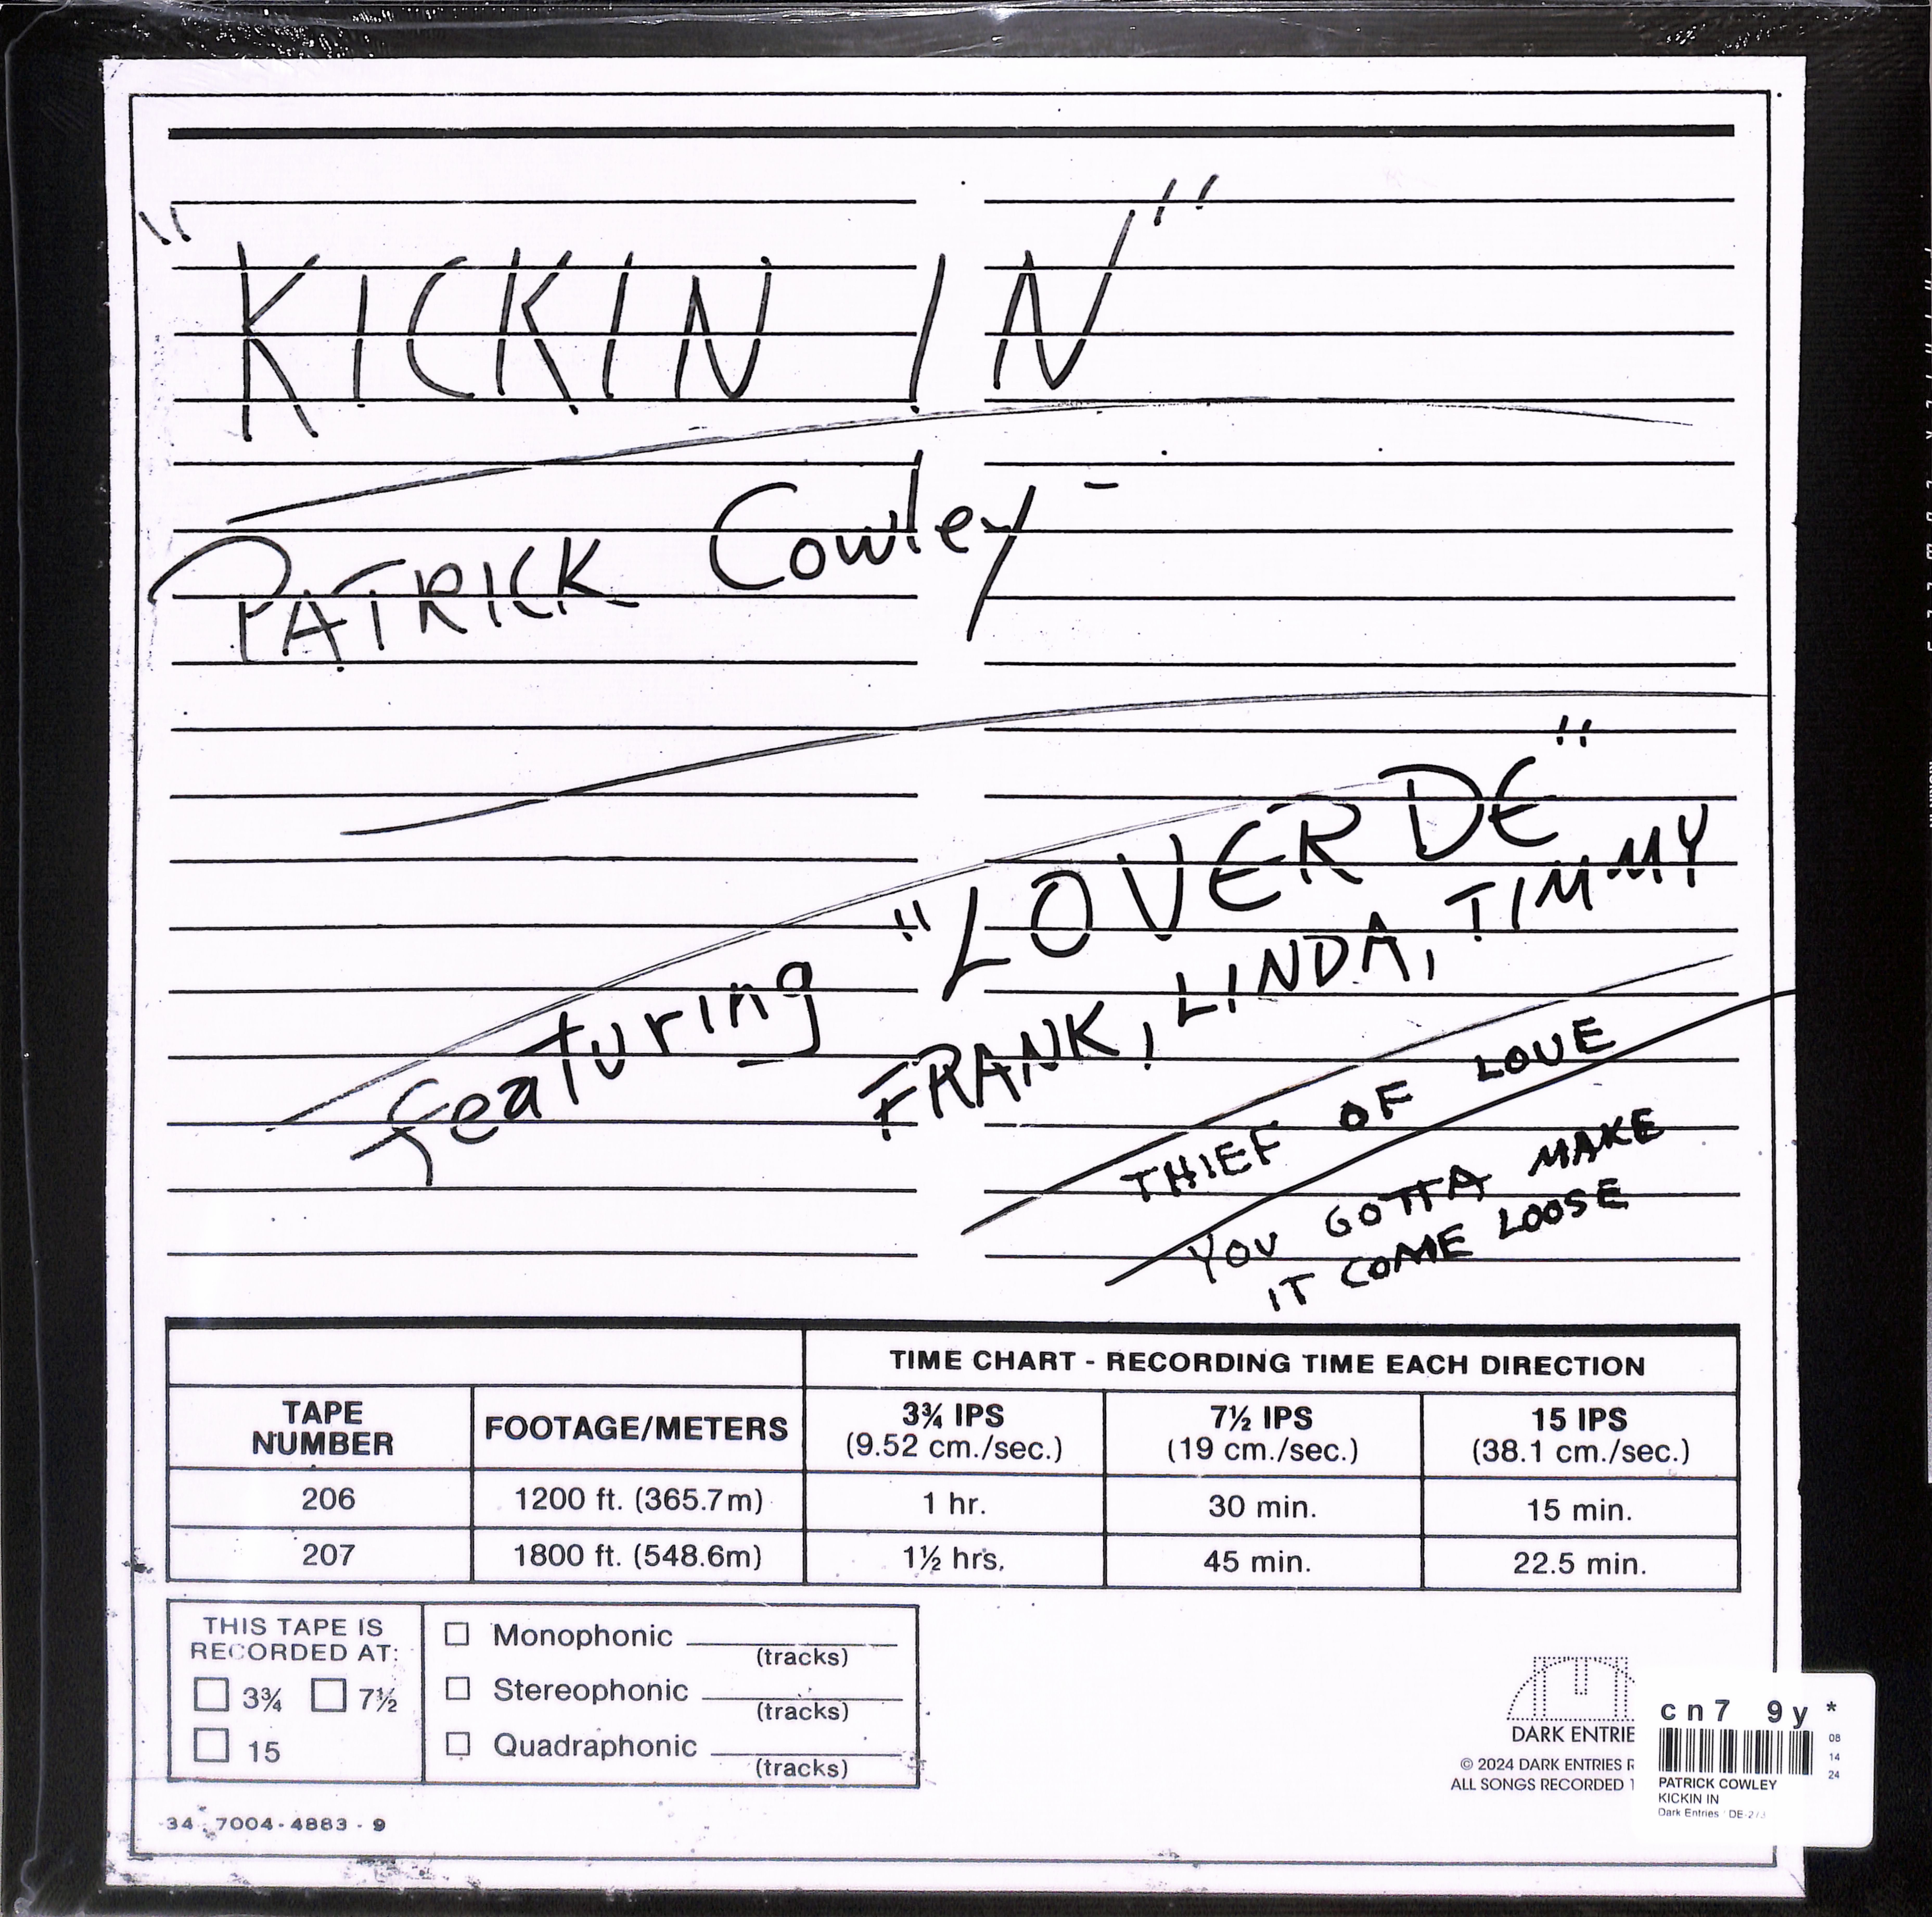 "KICKIN IN"
PATRICK Cowley -
featuring "LOVER DE"
FRANK, LINDA, TIMMY
THIEF OF LOVE
YOU GOTTA MAKE
IT COME LOOSE
TIME CHART - RECORDING TIME EACH DIRECTION
TAPE NUMBER FOOTAGE/METERS 3¾ IPS (9.52 cm./sec.) 7½ IPS (19 cm./sec.) 15 IPS (38.1 cm./sec.)
206 1200 ft. (365.7m) 1 hr. 30 min. 15 min.
207 1800 ft. (548.6m) 1½ hrs. 45 min. 22.5 min.
THIS TAPE IS
RECORDED AT:
3¾ 7½
15
Monophonic
(tracks)
Stereophonic
(tracks)
Quadraphonic
(tracks)
34 7004-4883-9
DARK ENTRIE
© 2024 DARK ENTRIES R
ALL SONGS RECORDED 1
cn7 9y *
08
14
24
PATRICK COWLEY
KICKIN IN
Dark Entries